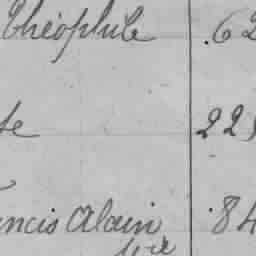 Théophile 62
te 22
ncis Alain 84